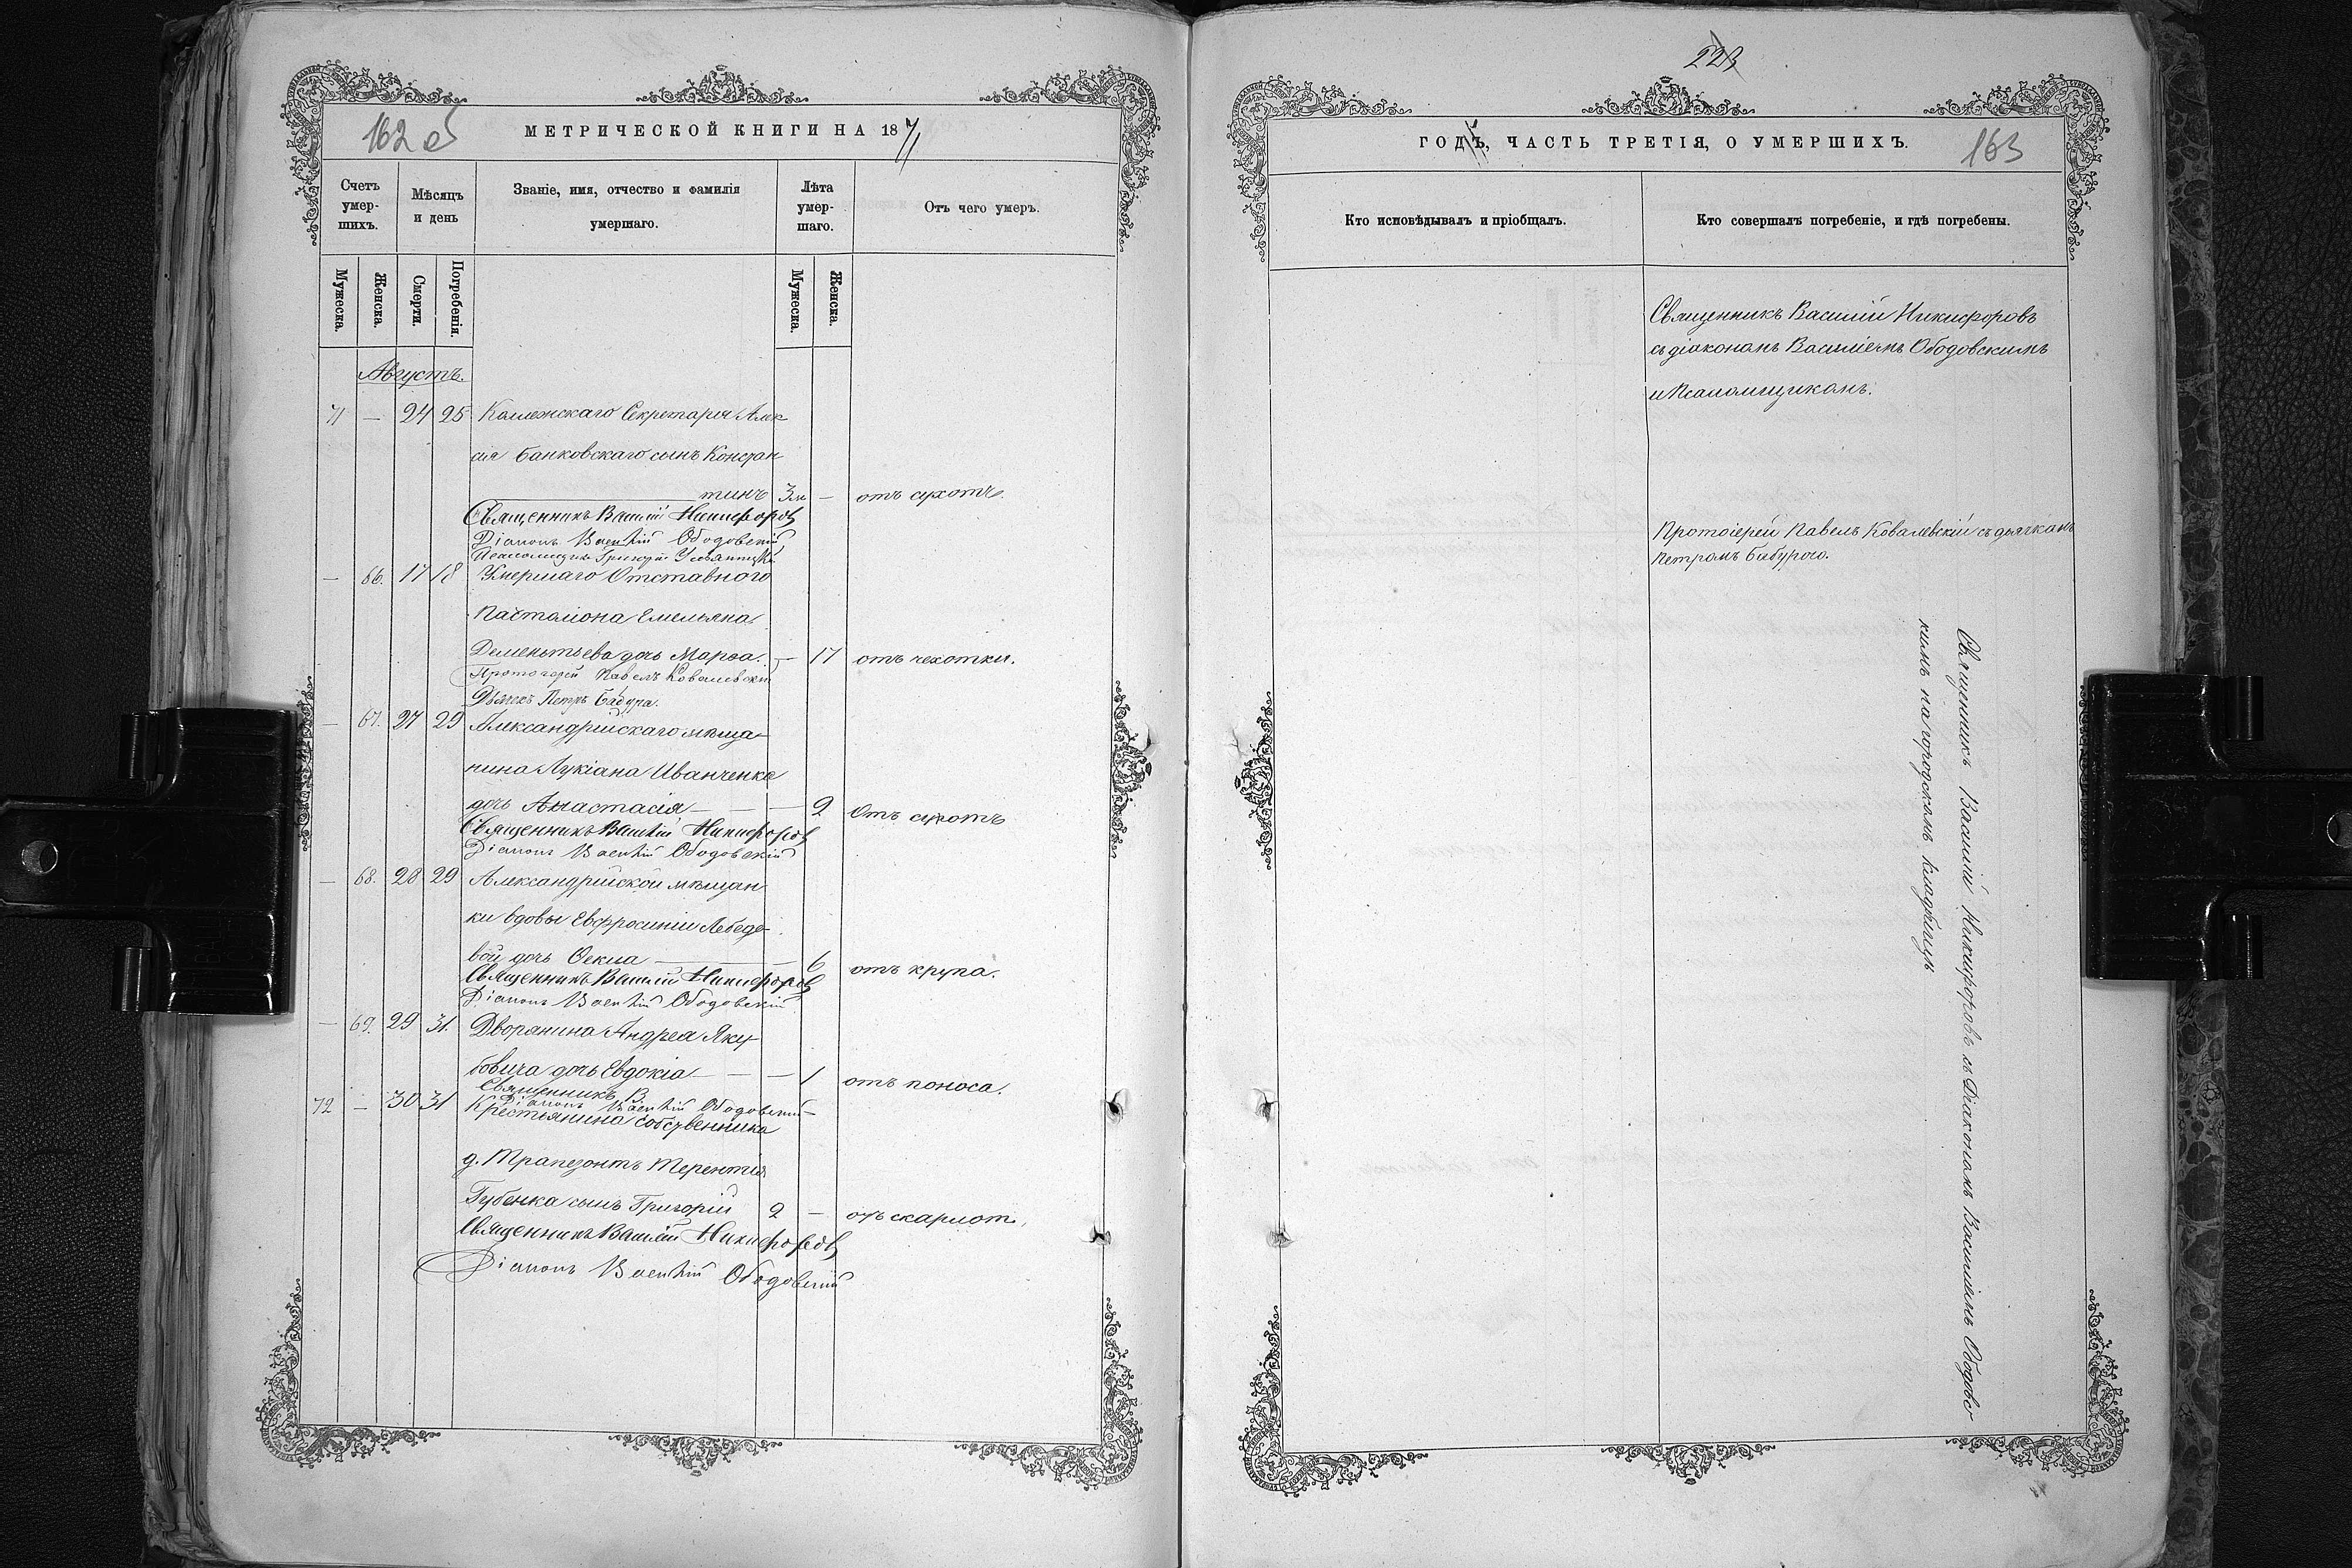 162 об
МЕТРИЧЕСКОЙ КНИГИ НА 1871
Счетъ умер-шихъ.
Мѣсяцъ и день
Званіе, имя, отчество и фамилія умершаго.
Лѣта умер-шаго.
Отъ чего умеръ.
Мужеска.
Женска.
Смерти.
Погребенія.
Мужеска.
Женска.
Августъ.
71 — 24 25 Коллежскаго Секретаря Алек
сія Банковскаго сынъ Констан
тинъ 3м — отъ сухотъ.
Священникъ Василій Никифоровъ
Діаконъ Василій Ободовскій
Псаломщикъ Григорій
— 66. 17 18 Умершаго Отставного
Пасталіона Емельяна
Дементьева дочь Марѳа. — 17 отъ чехотки.
Протоіерей Павелъ Ковалевскій
Дьячекъ Петръ Бабура.
— 67. 27 29 Александрійскаго мѣща-
нина Лукіана Иванченка
дочь Анастасія — — — 2 Отъ сухотъ
Священникъ Василій Никифоровъ
Діаконъ Василій Ободовскій
— 68. 28 29 Александрійской мѣщан
ки вдовы Евфросиніи Лебеде-
вой дочь Ѳекла — — 6 отъ крупа.
Священникъ Василій Никифоровъ
Діаконъ Василій Ободовскій
— 69. 29 31. Дворянина Андрея Яку-
бовича дочь Евдокія — — — 1 отъ поноса.
Священникъ В
Діаконъ Василій Ободовскій
72 — 30 31 Крестьянина собственника
д. Трапезонтъ Терентія
Губенка сынъ Григорій 2 — отъ скарлат.
Священникъ Василій Никифоровъ
Діаконъ Василій Ободовскій
223
ГОДЪ, ЧАСТЬ ТРЕТІЯ, О УМЕРШИХЪ.
163
Кто исповѣдывалъ и пріобщалъ.
Кто совершалъ погребеніе, и гдѣ погребены.
Священникъ Василій Никифоровъ
съ діакономъ Василіемъ Ободовскимъ
и Псаломщикомъ.
Протоіерей Павелъ Ковалевскій съ дьячкомъ
Петромъ Бабурою.
Священникъ Василій Никифоровъ съ Діакономъ Василіемъ Ободовс
кимъ на городскомъ кладбищѣ